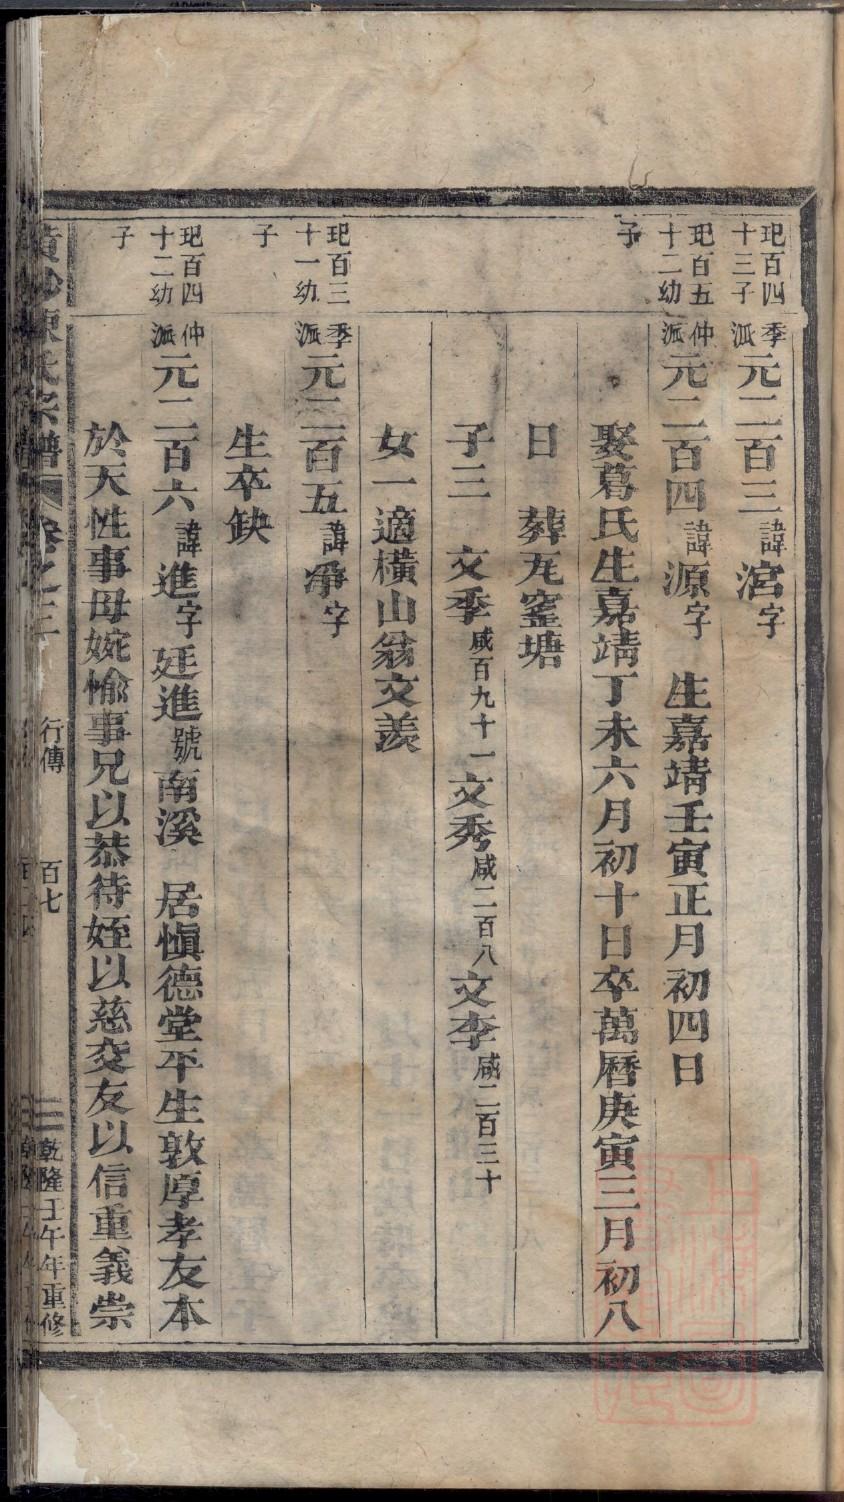 玘百四十三子 季派 元二百三 諱宮字
玘百五十二幼子 仲派 元二百四 諱源字 生嘉靖壬寅正月初四日
娶葛氏生嘉靖丁未六月初十日卒萬曆庚寅三月初八
日 葬瓦窰塘
子三 文季 咸百九十一 文秀 咸二百八 文李 咸二百三十
女一適橫山翁文羨
玘百三十一幼子 季派 元二百五 諱淨字
生卒缺
玘百四十二幼子 仲派 元二百六 諱進字廷進號南溪 居愼德堂平生敦厚孝友本
於天性事母婉愉事兄以恭待姪以慈交友以信重義崇
黄沙陳氏宗譜 卷之三 行傳 百七 乾隆壬午年重修